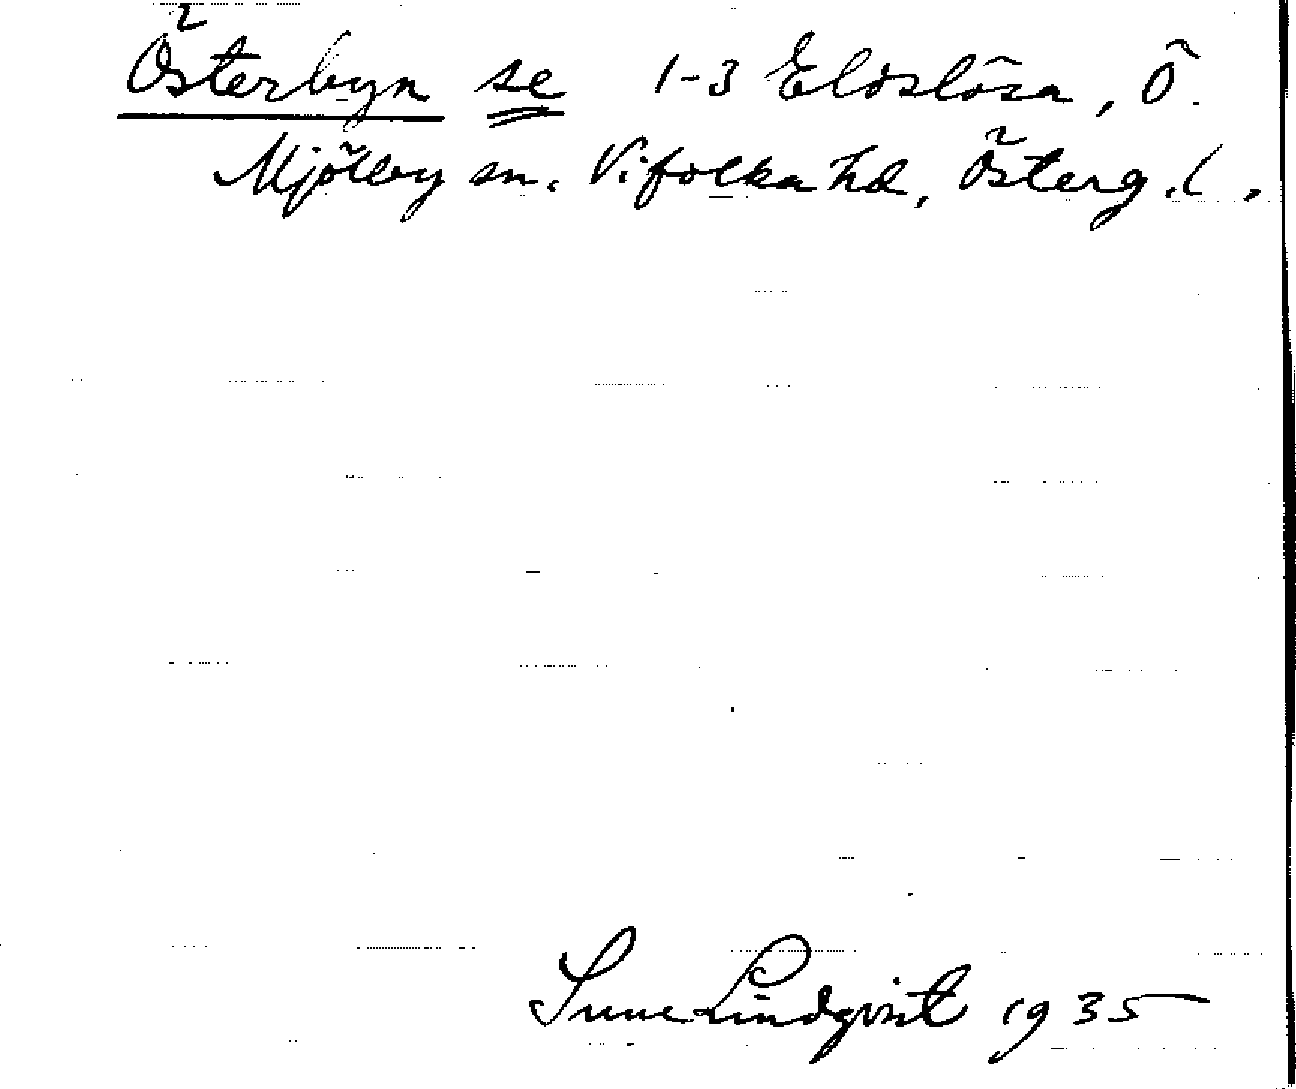 Österbyn se 1-3 Eldslösa, Ö.
Mjölby sn. Vifolka hd, Österg. l.
Sune Lindqvist 1935